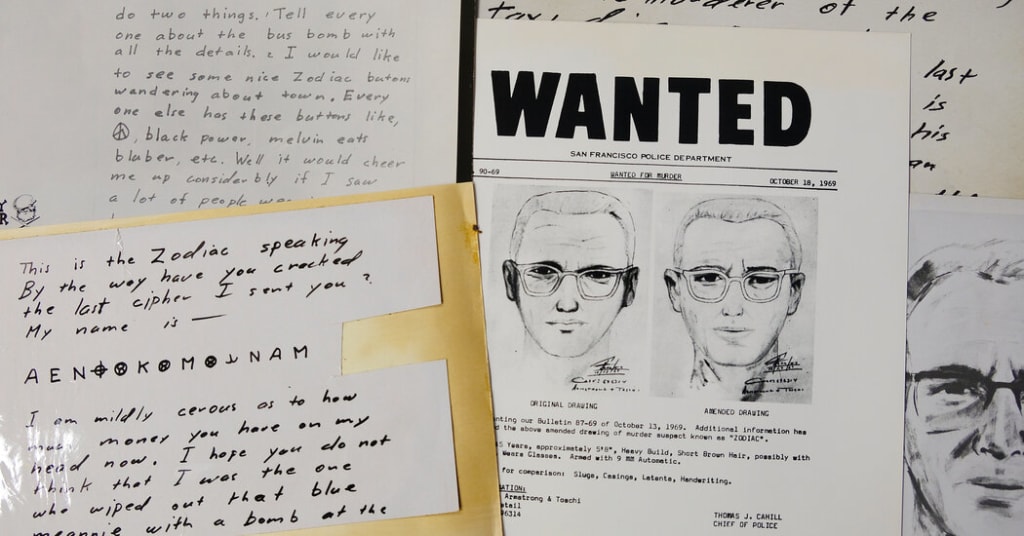 do two things. Tell every
one about the bus bomb with
all the details. 2 I would like
to see some nice Zodiac butons
wandering about town. Every
one else has these buttons like,
☮, black power, melvin eats
bluber, etc. Well it would cheer
me up considerbly if I saw
a lot of people
This is the Zodiac speaking
By the way have you cracked
the last cipher I sent you?
My name is —
A E N ⌖ ⊗ K ⊗ M ⊗ ⅃ N A M
I am mildly cerous as to how
much money you have on my
head now. I hope you do not
think that I was the one
who wiped out that blue
meannie with a bomb at the
of the
last
is
his
WANTED
SAN FRANCISCO POLICE DEPARTMENT
90-69 WANTED FOR MURDER OCTOBER 18, 1969
ORIGINAL DRAWING AMENDED DRAWING
our Bulletin 87-69 of October 13, 1969. Additional information has
the above amended drawing of murder suspect known as "ZODIAC".
Years, approximately 5'8", Heavy Build, Short Brown Hair, possibly with
Wears Glasses. Armed with 9 MM Automatic.
for comparison: Slugs, Casings, Latents, Handwriting.
Armstrong & Toschi
THOMAS J. CAHILL
CHIEF OF POLICE